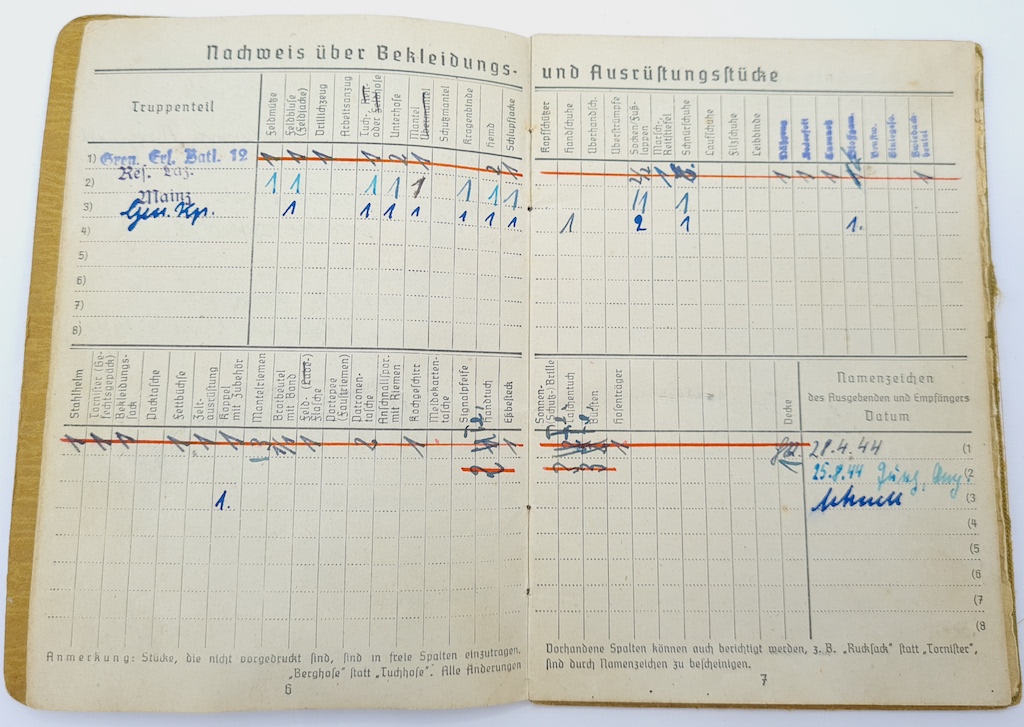 Nachweis über Bekleidungs- und Ausrüstungsstücke
Truppenteil
Feldmütze
Feldbluse (Feldjacke)
Drillichzeug
Arbeitsanzug
Tuch- oder Feldhose
Unterhose
Mantel
Übermantel
Schutzmantel
Kragenbinde
Hemd
Schlupfjacke
Kopfschützer
Handschuhe
Überhandsch.
Überstrümpfe
Socken-Fuß-
lappen
Marsch-
Reitstiefel
Schnürschuhe
Laufschuhe
Filzschuhe
Leibbinde
1) Gren. Ers. Batl. 12 1 1 1 1 2 1 2 1
2) Res. Laz. 1 1 1 1 1 1 1 1
Mainz
3) Gen. Kp. 1 1 1 1 1 1 1
4)
5)
6)
7)
8)
1 1 1 1
11 1
1 2 1 1.
Stahlhelm
Tornister (Ge-
fechtsgepäck)
Bekleidungs-
sack
Packtasche
Fettbüchse
Zelt-
ausrüstung
Koppel
mit Zubehör
Mantelriemen
Brotbeutel
mit Band
Feld- (Labe-)
flasche
Portepee
(Faustriemen)
Patronen-
tasche
Anschnallspor.
mit Riemen
Kochgeschirr
Meldekarten-
tasche
Signalpfeife
Handtuch
Eßbesteck
Sonnen-
(Schutz-) Brille
Taschentuch
Bürsten
Hosenträger
Decke
Namenzeichen
des Ausgebenden und Empfängers
Datum
1 1 1 1 1 1 3 1 2 1 1
1.
28.4.44 (1
25.8.44 (2
(3
(4
(5
(6
(7
(8
Anmerkung: Stücke, die nicht vorgedruckt sind, sind in freie Spalten einzutragen.
„Berghose" statt „Tuchhose". Alle Änderungen
6
Vorhandene Spalten können auch berichtigt werden, z. B. „Rucksack" statt „Tornister",
sind durch Namenzeichen zu bescheinigen.
7